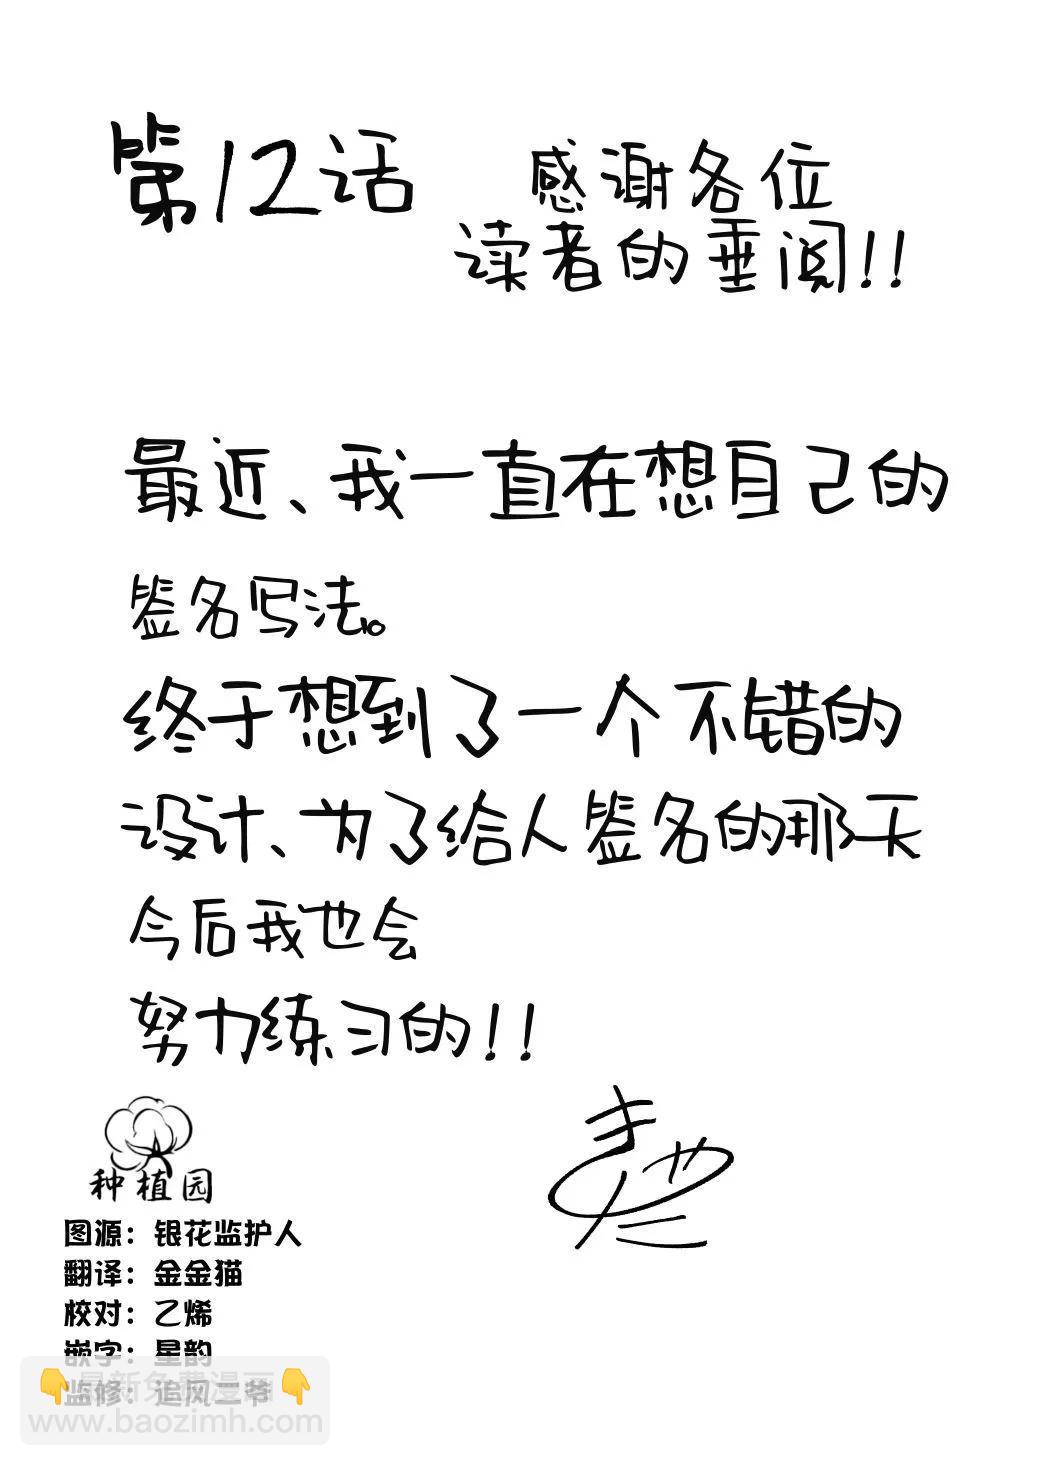 第12话
感谢各位
读者的垂阅!!
最近、我一直在想自己的
签名写法。
终于想到了一个不错的
设计、为了给人签名的那天
今后我也会
努力练习的!!
种植园
图源：银花监护人
翻译：金金猫
校对：乙烯
嵌字：星韵
监修：追风二爷
最新免费漫画
www.baozimh.com